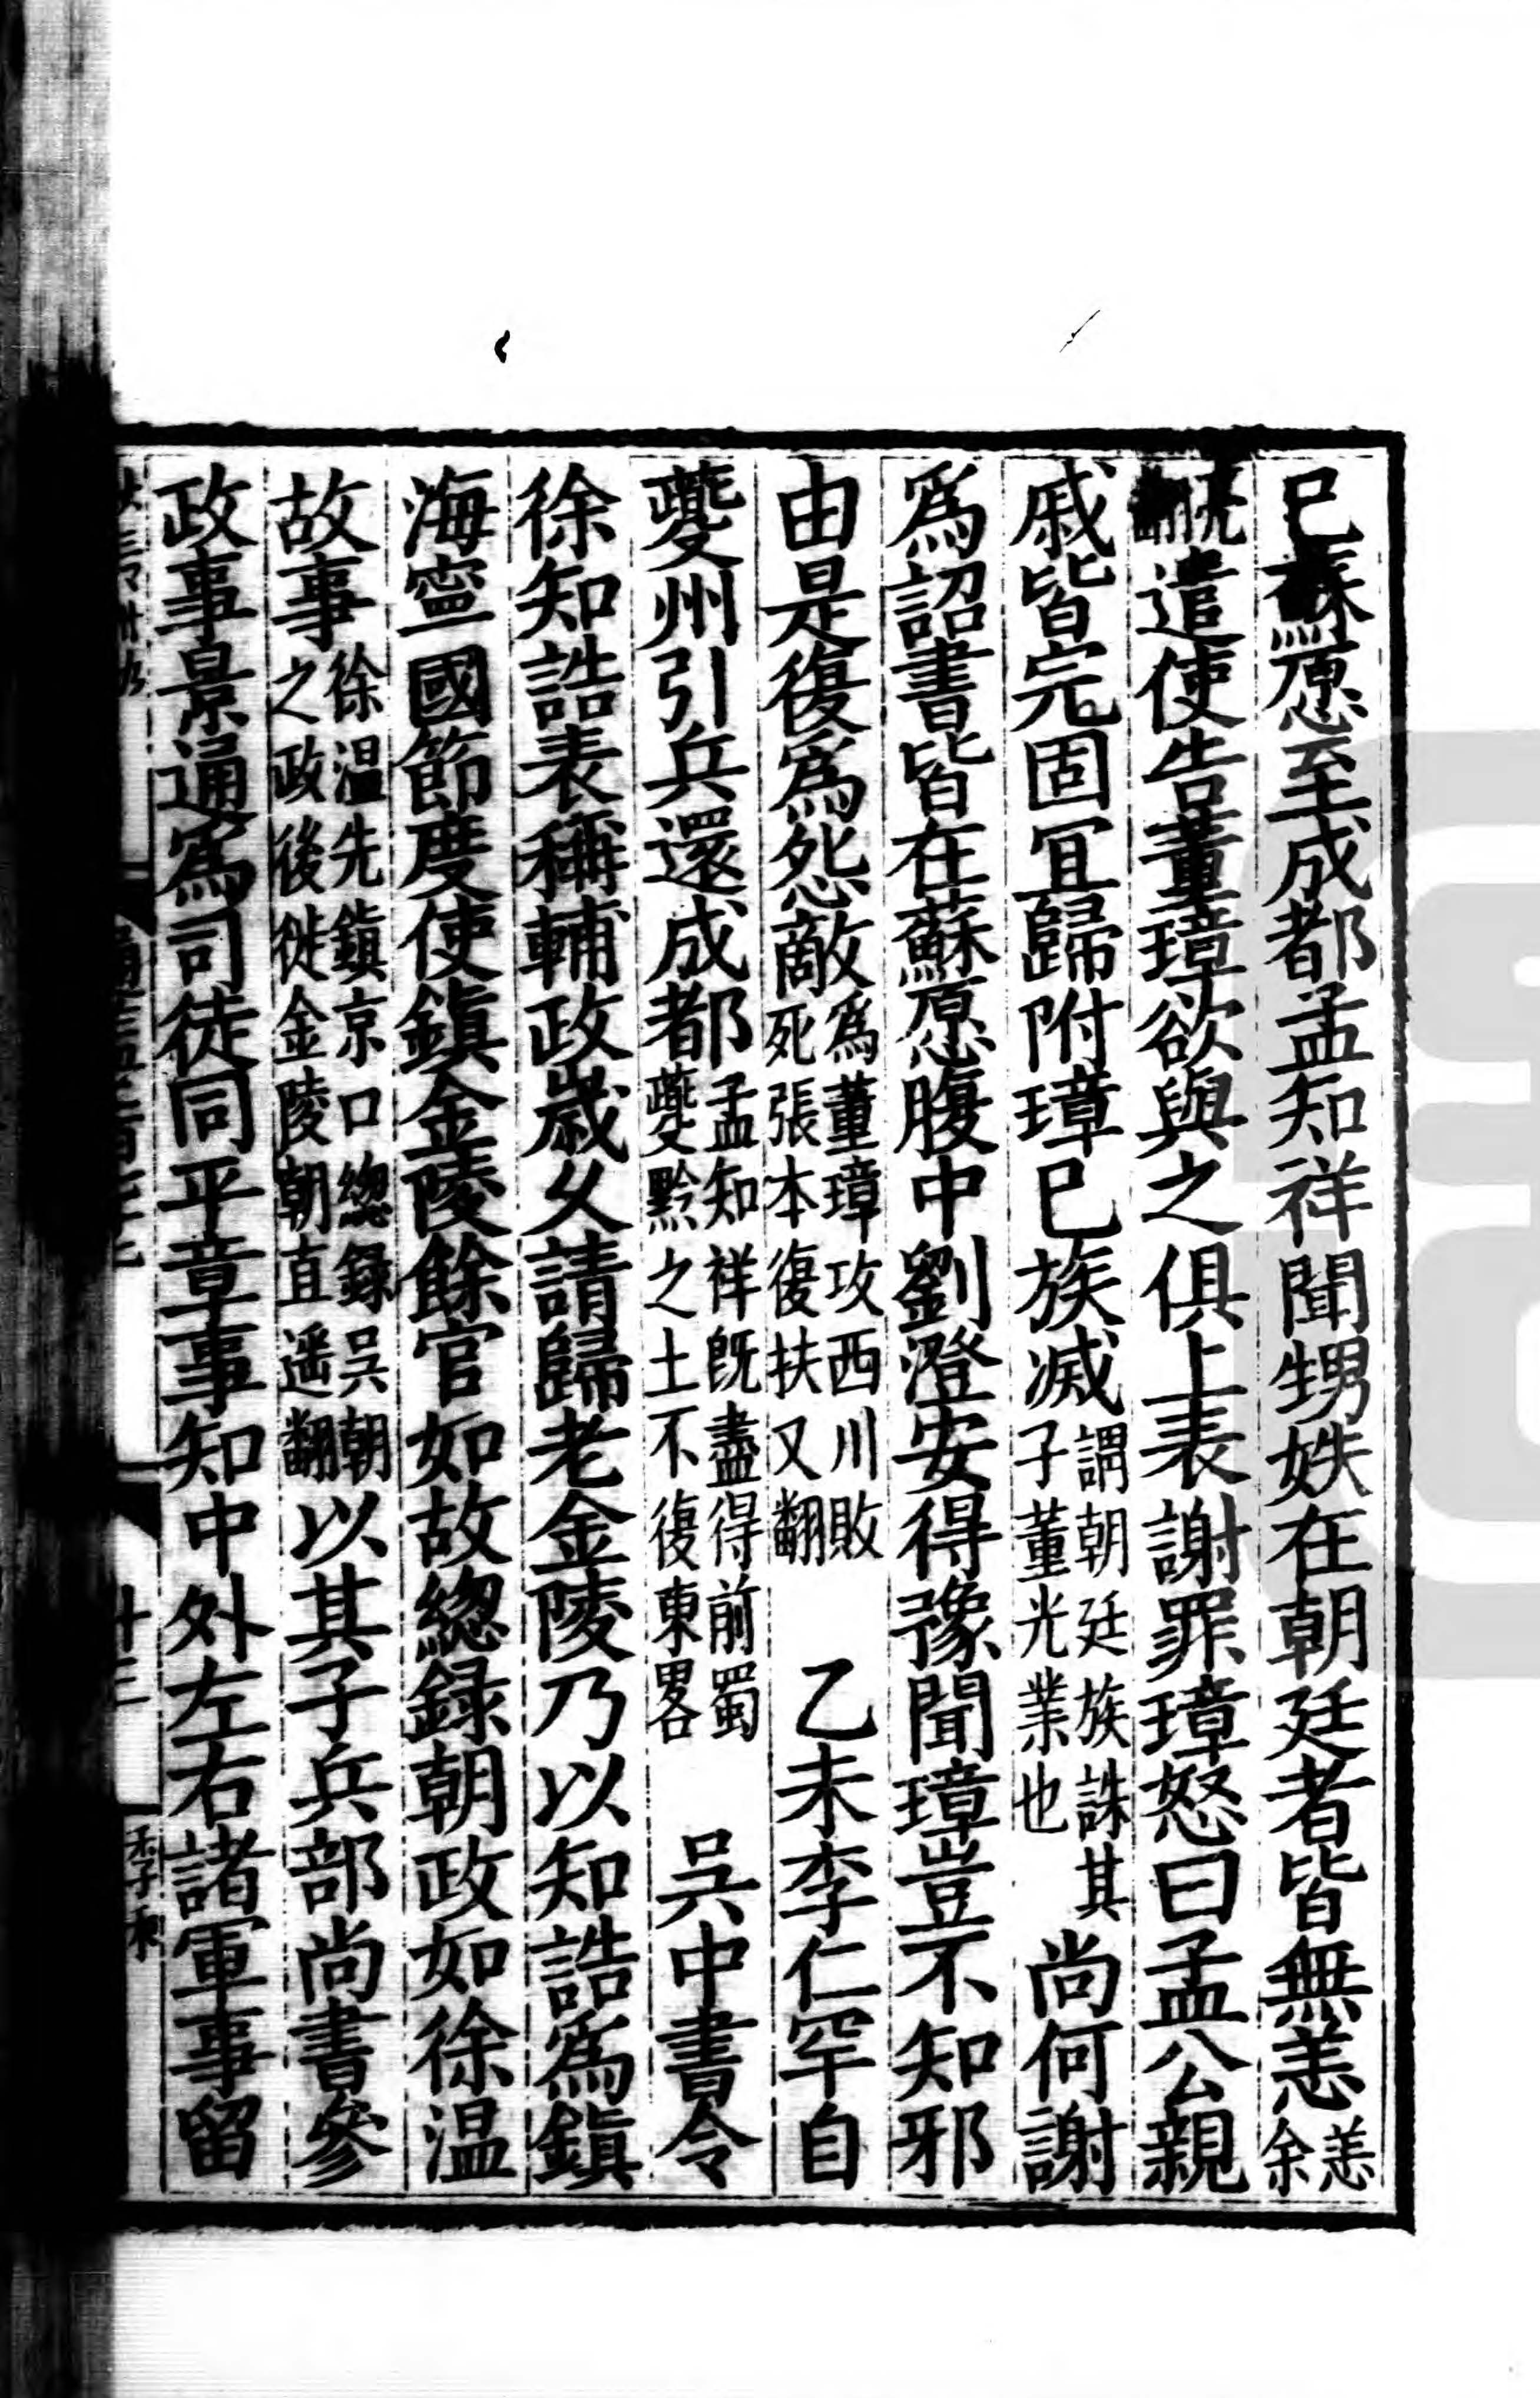 已蘇愿至成都孟知祥聞甥姪在朝廷者皆無恙恙余
亮翻遣使告董璋欲與之俱上表謝罪璋怒曰孟公親
戚皆完固冝歸附璋已族滅謂朝廷族誅其子董光業也尚何謝
爲詔書皆在蘇愿腹中劉澄安得豫聞璋豈不知邪
由是復爲怨敵爲董璋攻西川敗死張本復扶又翻 乙未李仁罕自
夔州引兵還成都孟知祥旣盡得前蜀夔黔之土不復東畧 吳中書令
徐知誥表稱輔政歲乆請歸老金陵乃以知誥爲鎮
海寧國節度使鎮金陵餘官如故緫録朝政如徐温
故事徐温先鎮京口緫録吳朝之政後徙金陵朝直遥翻以其子兵部尚書參
政事景通爲司徒同平章事知中外左右諸軍事留